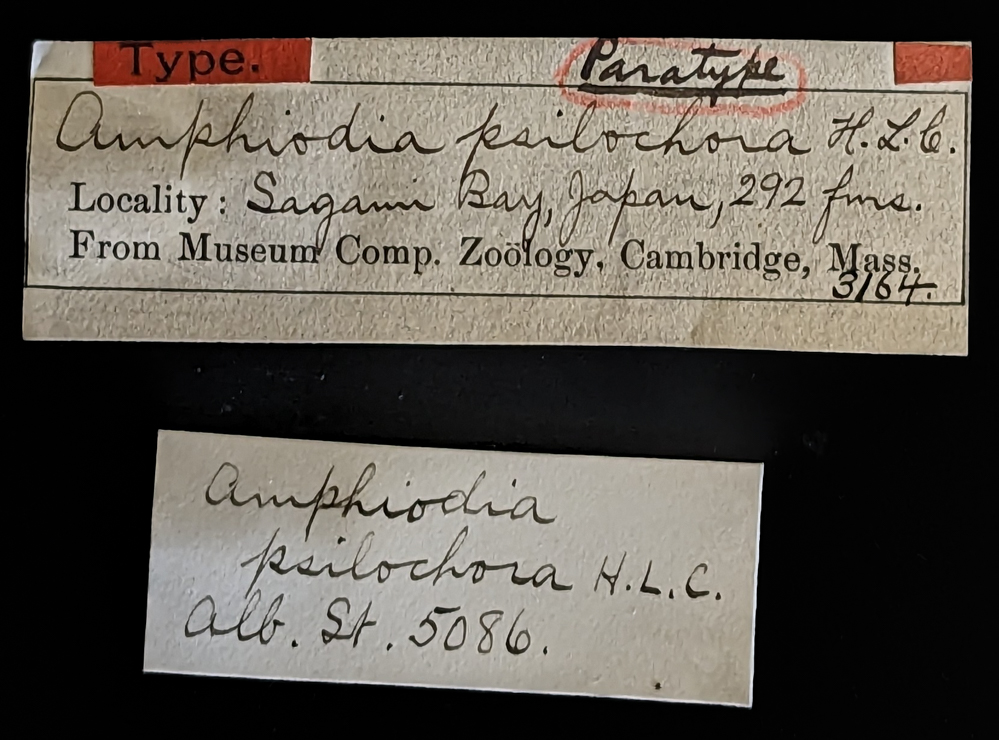 Type. Paratype
Amphiodia psilochora H.L.C.
Locality: Sagami Bay, Japan, 292 fms.
From Museum Comp. Zoölogy, Cambridge, Mass.
3164.
Amphiodia
psilochora H.L.C.
Alb. St. 5086.